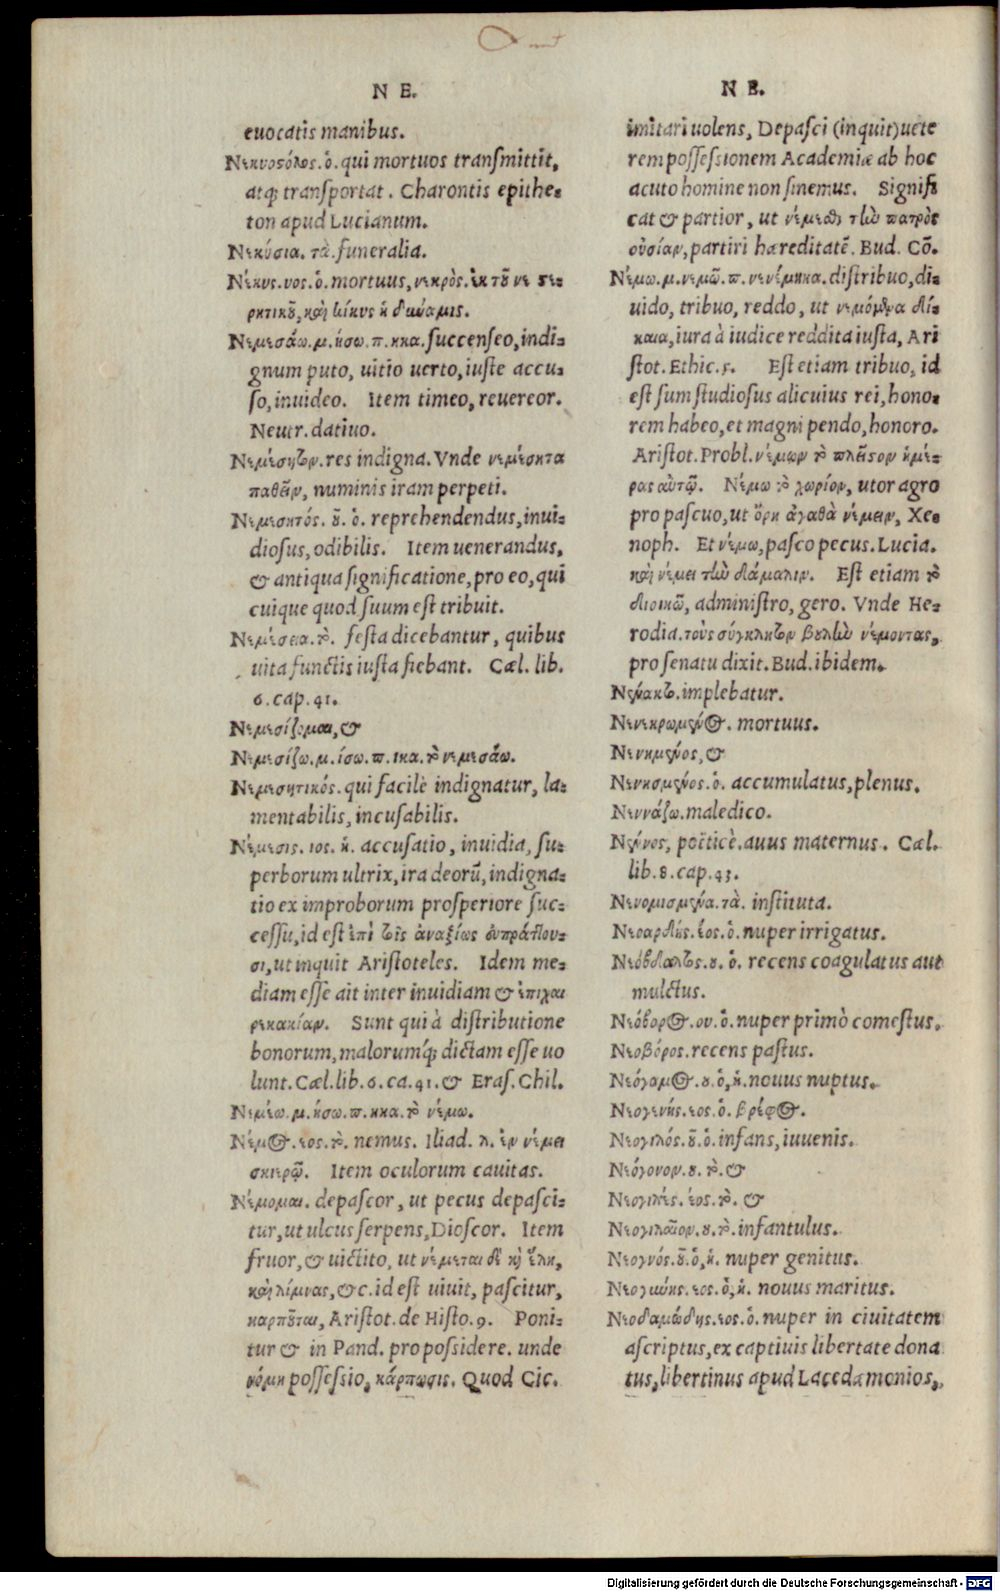 N E.
euocatis manibus.
Νεκυοστόλος. ὁ. qui mortuos transmittit,
atq; transportat. Charontis epithe-
ton apud Lucianum.
Νεκύσια. τὰ. funeralia.
Νέκυς. υος. ὁ. mortuus, νεκρὸς. ἐκ τοῦ νε στε-
ρητικοῦ, καὶ κίκυς ἡ δύναμις.
Νεμεσάω. μ. ήσω. π. ηκα. succenseo, indi-
gnum puto, uitio uerto, iuste accu-
so, inuideo. Item timeo, reuereor.
Neutr. datiuo.
Νεμέσητον. res indigna. Vnde νεμέσητα
παθεῖν, numinis iram perpeti.
Νεμεσητός. οῦ. ὁ. reprehendendus, inui-
diosus, odibilis. Item uenerandus,
& antiqua significatione, pro eo, qui
cuique quod suum est tribuit.
Νεμέσεια. τὸ. festa dicebantur, quibus
uita functis iusta fiebant. Cæl. lib.
6. cap. 41.
Νεμεσίζομαι, &
Νεμεσίζω. μ. ίσω. π. ικα. τὸ νεμεσάω.
Νεμεσητικός. qui facilè indignatur, la-
mentabilis, incusabilis.
Νέμεσις. ιος. ἡ. accusatio, inuidia, su-
perborum ultrix, ira deorũ, indigna-
tio ex improborum prosperiore suc-
cessu, id est ἐπὶ τοῖς ἀναξίως εὐπράττου-
σι, ut inquit Aristoteles. Idem me-
diam esse ait inter inuidiam & ἐπιχαι
ρεκακίαν. Sunt qui à distributione
bonorum, malorumq́; dictam esse uo
lunt. Cæl. lib. 6. ca. 41. & Eras. Chil.
Νεμέω. μ. ήσω. π. ηκα. τὸ νέμω.
Νέμος. εος. τὸ. nemus. Iliad. λ. ἐν νέμει
σκιερῷ. Item oculorum cauitas.
Νέμομαι. depascor, ut pecus depasci-
tur, ut ulcus serpens, Dioscor. Item
fruor, & uictito, ut νέμεται δὲ κỳ ἕλη,
καὶ λίμνας, &c. id est uiuit, pascitur,
καρποῦται, Aristot. de Histo. 9. Poni-
tur & in Pand. pro possidere. unde
νόμη possessio, κάρπωσις. Quod Cic.
N E.
imitari uolens, Depasci (inquit) uete
rem possessionem Academiæ ab hoc
acuto homine non sinemus. Signifi
cat & partior, ut νέμεσθαι τὴν πατρὸς
οὐσίαν, partiri hæreditatẽ. Bud. Cõ.
Νέμω. μ. νεμῶ. π. νενέμηκα. distribuo, di-
uido, tribuo, reddo, ut νεμόμενα δί-
καια, iura à iudice reddita iusta, Ari
stot. Ethic. 5. Est etiam tribuo, id
est sum studiosus alicuius rei, hono-
rem habeo, et magni pendo, honoro.
Aristot. Probl. νέμων τὸ πλεῖστον ἡμέ-
ρας αὐτῷ. Νέμω τὸ χωρίον, utor agro
pro pascuo, ut ὄρη ἀγαθὰ νέμειν, Xe-
noph. Et νέμω, pasco pecus. Lucia.
καὶ νέμει τὴν δάμαλιν. Est etiam τὸ
διοικῶ, administro, gero. Vnde He-
rodia. τοὺς σύγκλητον βουλὴν νέμοντας,
pro senatu dixit. Bud. ibidem.
Νένακτο. implebatur.
Νενεκρωμένος. mortuus.
Νενημένος, &
Νενησμένος. ὁ. accumulatus, plenus.
Νεννάζω. maledico.
Νέννος, poëticè. auus maternus. Cæl.
lib. 8. cap. 43.
Νενομισμένα. τὰ. instituta.
Νεοαρδής. έος. ὁ. nuper irrigatus.
Νεόβδαλτος. ου. ὁ. recens coagulatus aut
mulctus.
Νεόβορος. ου. ὁ. nuper primò comestus.
Νεοβόρος. recens pastus.
Νεόγαμος. ου. ὁ, ἡ. nouus nuptus.
Νεογενής. εος. ὁ. βρέφος.
Νεογιλός. οῦ. ὁ. infans, iuuenis.
Νεόγονον. ου. τὸ. &
Νεογιλές. έος. τὸ. &
Νεογιλαῖον. ου. τὸ. infantulus.
Νεογνός. οῦ. ὁ, ἡ. nuper genitus.
Νεογύνης. εος. ὁ, ἡ. nouus maritus.
Νεοδαμώδης. εος. ὁ. nuper in ciuitatem
ascriptus, ex captiuis libertate dona
tus, libertinus apud Lacedæmonios,
Digitalisierung gefördert durch die Deutsche Forschungsgemeinschaft - DFG